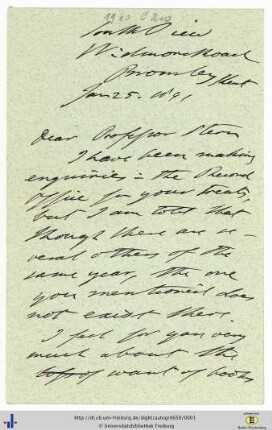 South View
Widmore Road
Bromley Kent
Jan 25. 1891
Dear Professor Stern
I have been making
enquiries in the Record
Office for your treaty,
but I am told that
though there are se-
veral others of the
same year, the one
you mentioned does
not exist there.
I feel for you very
much about the
want of books
http://dl.ub.uni-freiburg.de/diglit/autogr0658/0001
© Universitätsbibliothek Freiburg